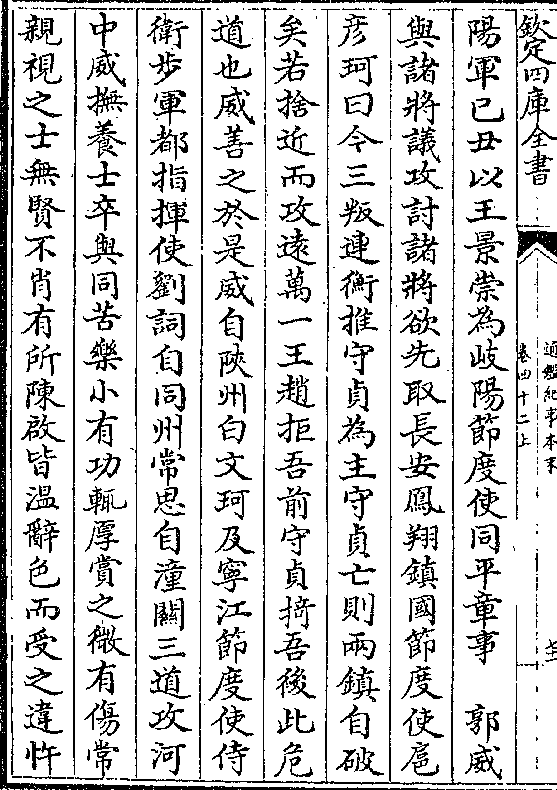 欽定四庫全書
通鑑紀事本末
卷四十二上
陽軍己丑以王景崇為岐陽節度使同平章事　郭威
與諸將議攻討諸將欲先取長安鳳翔鎮國節度使扈
彥珂曰今三叛連衡推守貞為主守貞亡則兩鎮自破
矣若捨近而攻遠萬一王趙拒吾前守貞掎吾後此危
道也威善之於是威自陝州白文珂及寧江節度使侍
衛步軍都指揮使劉詞自同州常思自潼關三道攻河
中威撫養士卒與同苦樂小有功輒厚賞之微有傷常
親視之士無賢不肖有所陳啟皆溫辭色而受之違忤